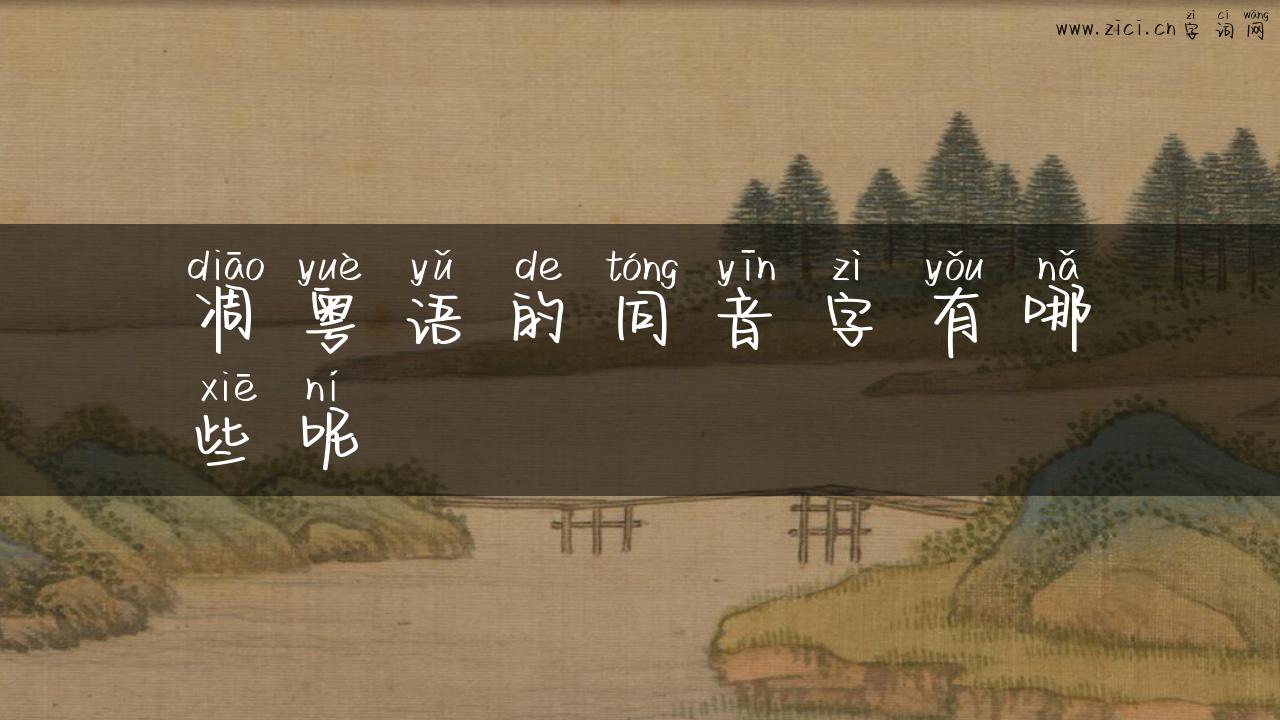 zì cí wǎng
www.zici.cn字词网
diāo yuè yǔ de tóng yīn zì yǒu nǎ
凋粤语的同音字有哪
xiē ní
些呢